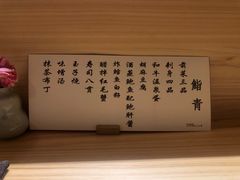 鮨青
前菜三品
刺身四品
和牛溫泉蛋
胡麻豆腐
酒蒸鮑魚配鮑肝醬
炸鱈魚白籽
醋拌紅毛蟹
壽司八貫
玉子燒
味噌湯
抹茶布丁